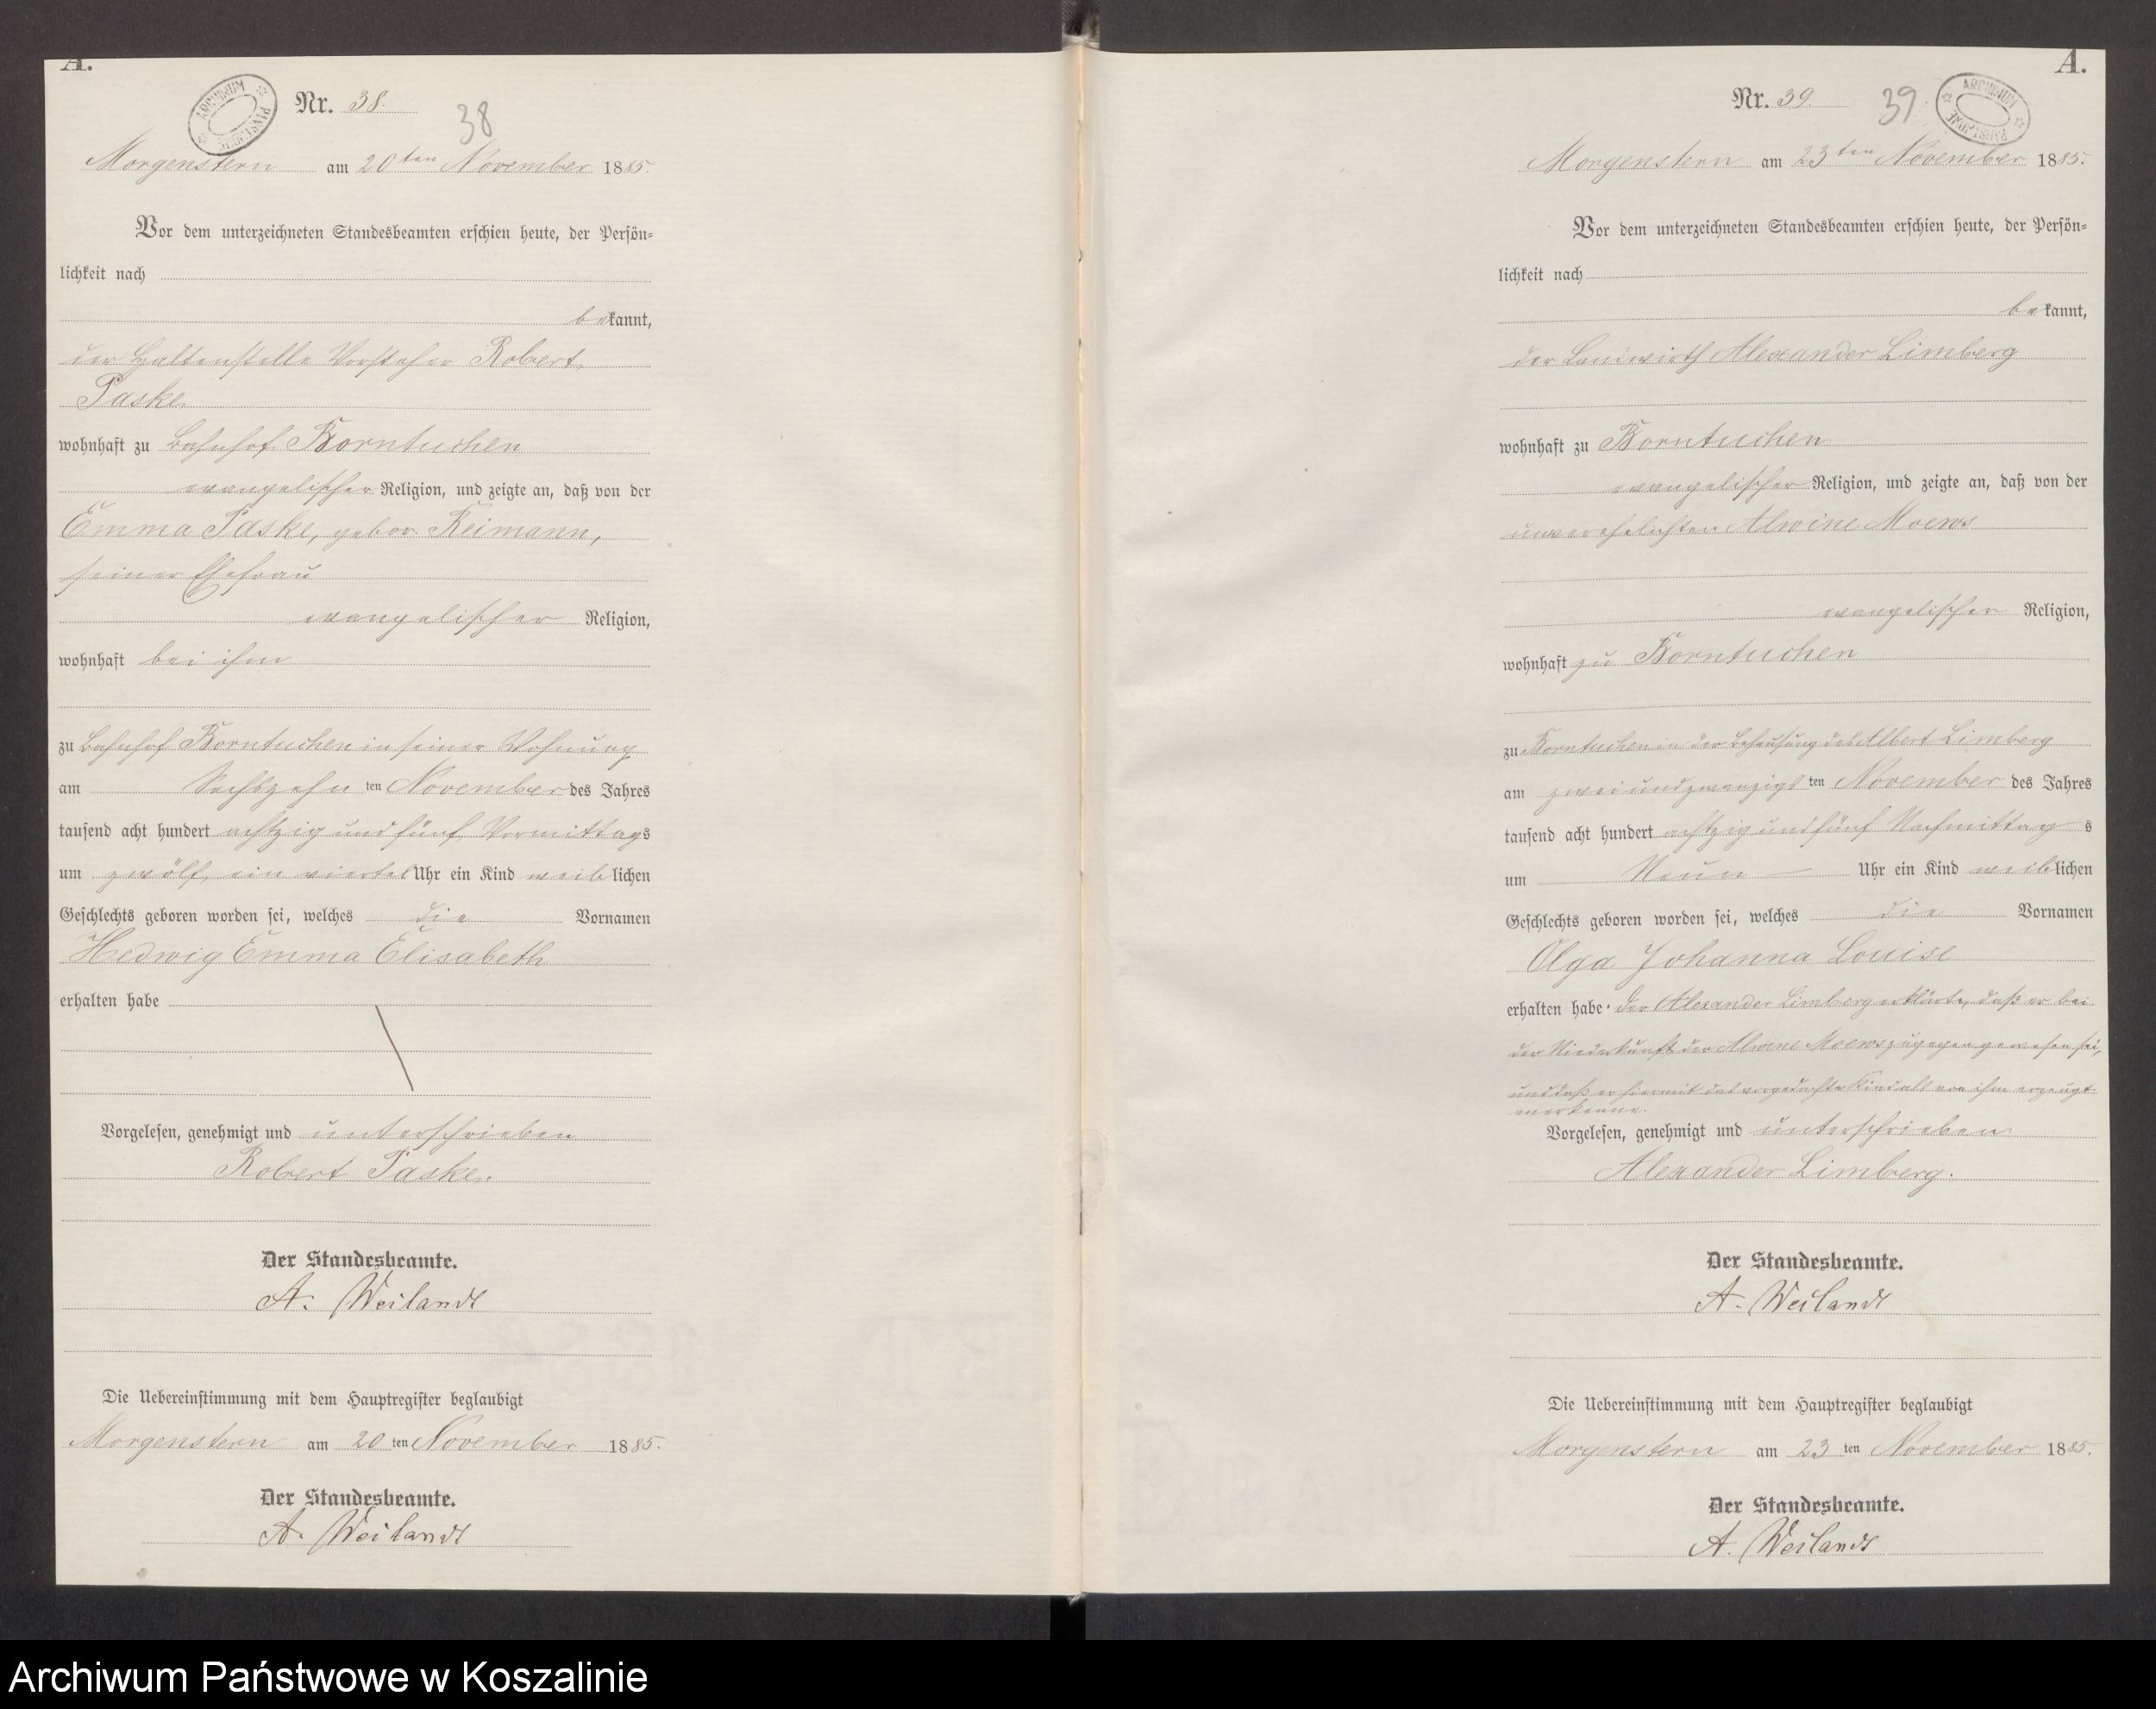 A.
ARCHIWUM PAŃSTWOWE
Nr. 38.
38
Morgenstern am 20ten November 1885.
Vor dem unterzeichneten Standesbeamten erschien heute, der Persön=
lichkeit nach
bekannt,
der Haltenstelle Vorsteher Robert
Paske
wohnhaft zu Bahnhof Borntuchen
evangelischer Religion, und zeigte an, daß von der
Emma Paske, gebor. Reimann,
seiner Ehefrau
evangelischer Religion,
wohnhaft bei ihm
zu Bahnhof Borntuchen in seiner Wohnung
am Sechszehn ten November des Jahres
tausend acht hundert achtzig und fünf Vormittags
um zwölf ein viertel Uhr ein Kind weiblichen
Geschlechts geboren worden sei, welches die Vornamen
Hedwig Emma Elisabeth
erhalten habe
Vorgelesen, genehmigt und unterschrieben
Robert Paske.
Der Standesbeamte.
A. Weilandt
Die Uebereinstimmung mit dem Hauptregister beglaubigt
Morgenstern am 20 ten November 1885.
Der Standesbeamte.
A. Weilandt
A.
ARCHIWUM PAŃSTWOWE
Nr. 39.
39
Morgenstern am 23ten November 1885.
Vor dem unterzeichneten Standesbeamten erschien heute, der Persön=
lichkeit nach
bekannt,
der Landwirth Alexander Limberg
wohnhaft zu Borntuchen
evangelischer Religion, und zeigte an, daß von der
unverehelichten Alwine Moews
evangelischer Religion,
wohnhaft zu Borntuchen
zu Borntuchen in der Behausung des Albert Limberg
am zweiundzwanzigs ten November des Jahres
tausend acht hundert achtzig und fünf Nachmittag s
um Neun Uhr ein Kind weiblichen
Geschlechts geboren worden sei, welches die Vornamen
Olga Johanna Louise
erhalten habe. Der Alexander Limberg erklärte, daß er bei
der Niederkunft der Alwine Moews zugegen gewesen sei,
und daß er hiermit das vorgedachte Kind als von ihm erzeugt
anerkenne.
Vorgelesen, genehmigt und unterschrieben
Alexander Limberg.
Der Standesbeamte.
A. Weilandt
Die Uebereinstimmung mit dem Hauptregister beglaubigt
Morgenstern am 23 ten November 1885.
Der Standesbeamte.
A. Weilandt
Archiwum Państwowe w Koszalinie